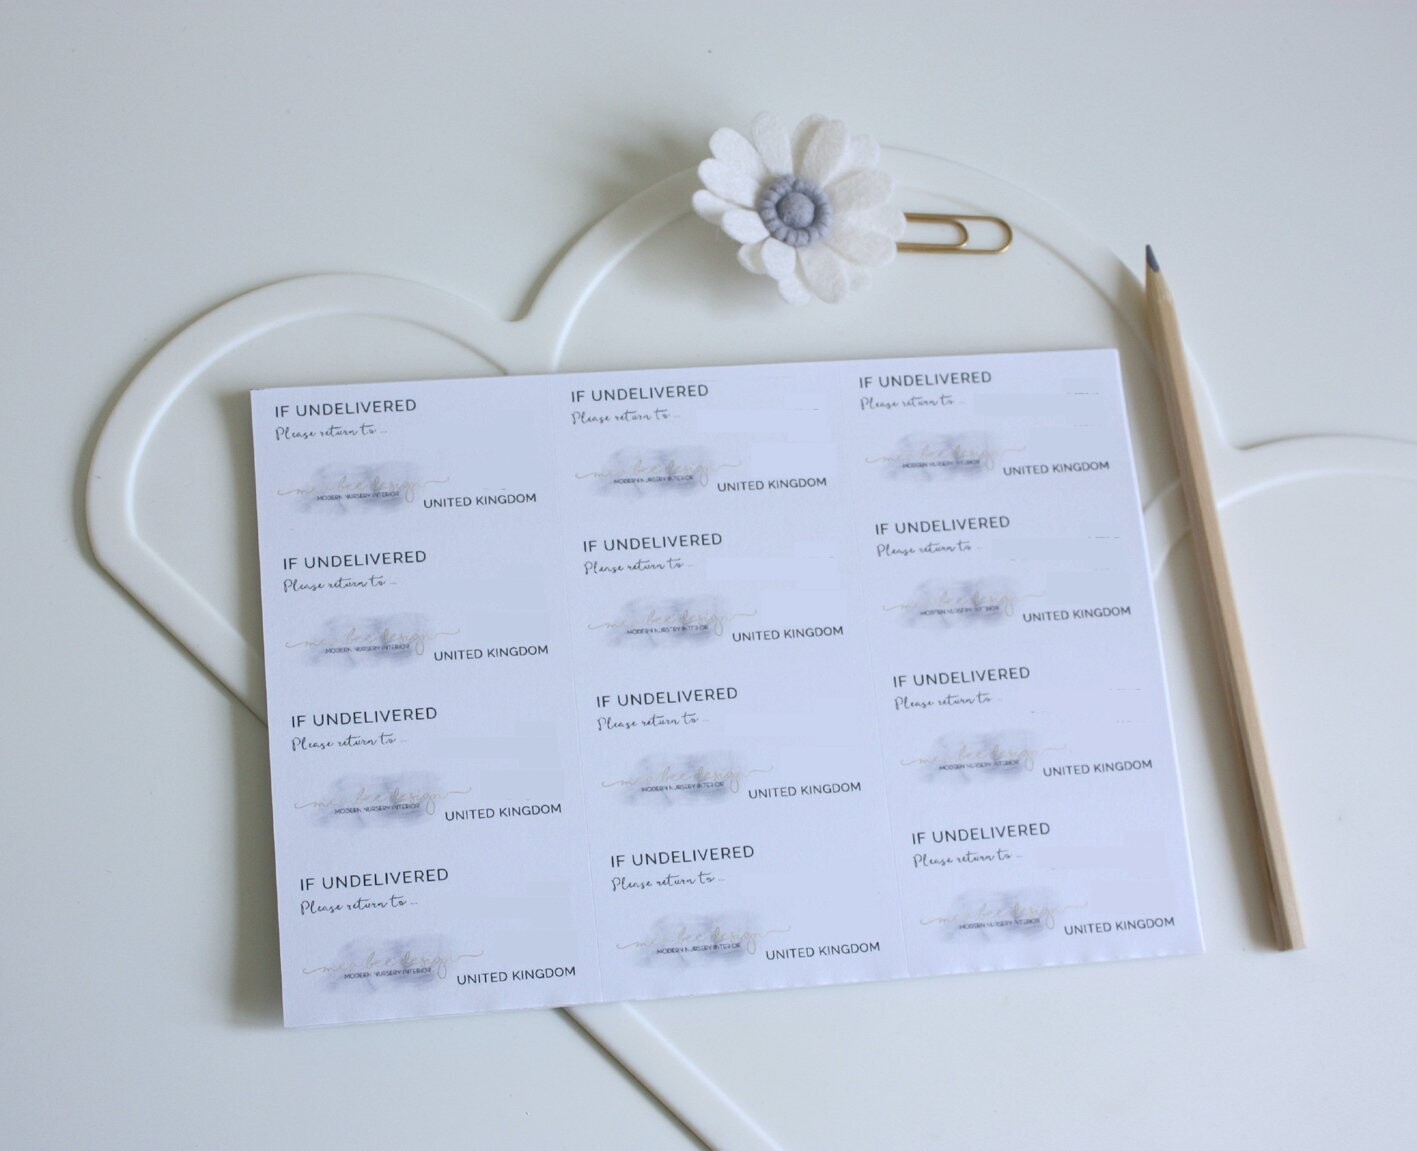 IF UNDELIVERED
Please return to ...
MODERN NURSERY INTERIOR
UNITED KINGDOM
IF UNDELIVERED
Please return to ...
MODERN NURSERY INTERIOR
UNITED KINGDOM
IF UNDELIVERED
Please return to ...
MODERN NURSERY INTERIOR
UNITED KINGDOM
IF UNDELIVERED
Please return to ...
MODERN NURSERY INTERIOR
UNITED KINGDOM
IF UNDELIVERED
Please return to ...
MODERN NURSERY INTERIOR
UNITED KINGDOM
IF UNDELIVERED
Please return to ...
MODERN NURSERY INTERIOR
UNITED KINGDOM
IF UNDELIVERED
Please return to ...
MODERN NURSERY INTERIOR
UNITED KINGDOM
IF UNDELIVERED
Please return to ...
MODERN NURSERY INTERIOR
UNITED KINGDOM
IF UNDELIVERED
Please return to ...
MODERN NURSERY INTERIOR
UNITED KINGDOM
IF UNDELIVERED
Please return to ...
MODERN NURSERY INTERIOR
UNITED KINGDOM
IF UNDELIVERED
Please return to ...
MODERN NURSERY INTERIOR
UNITED KINGDOM
IF UNDELIVERED
Please return to ...
MODERN NURSERY INTERIOR
UNITED KINGDOM